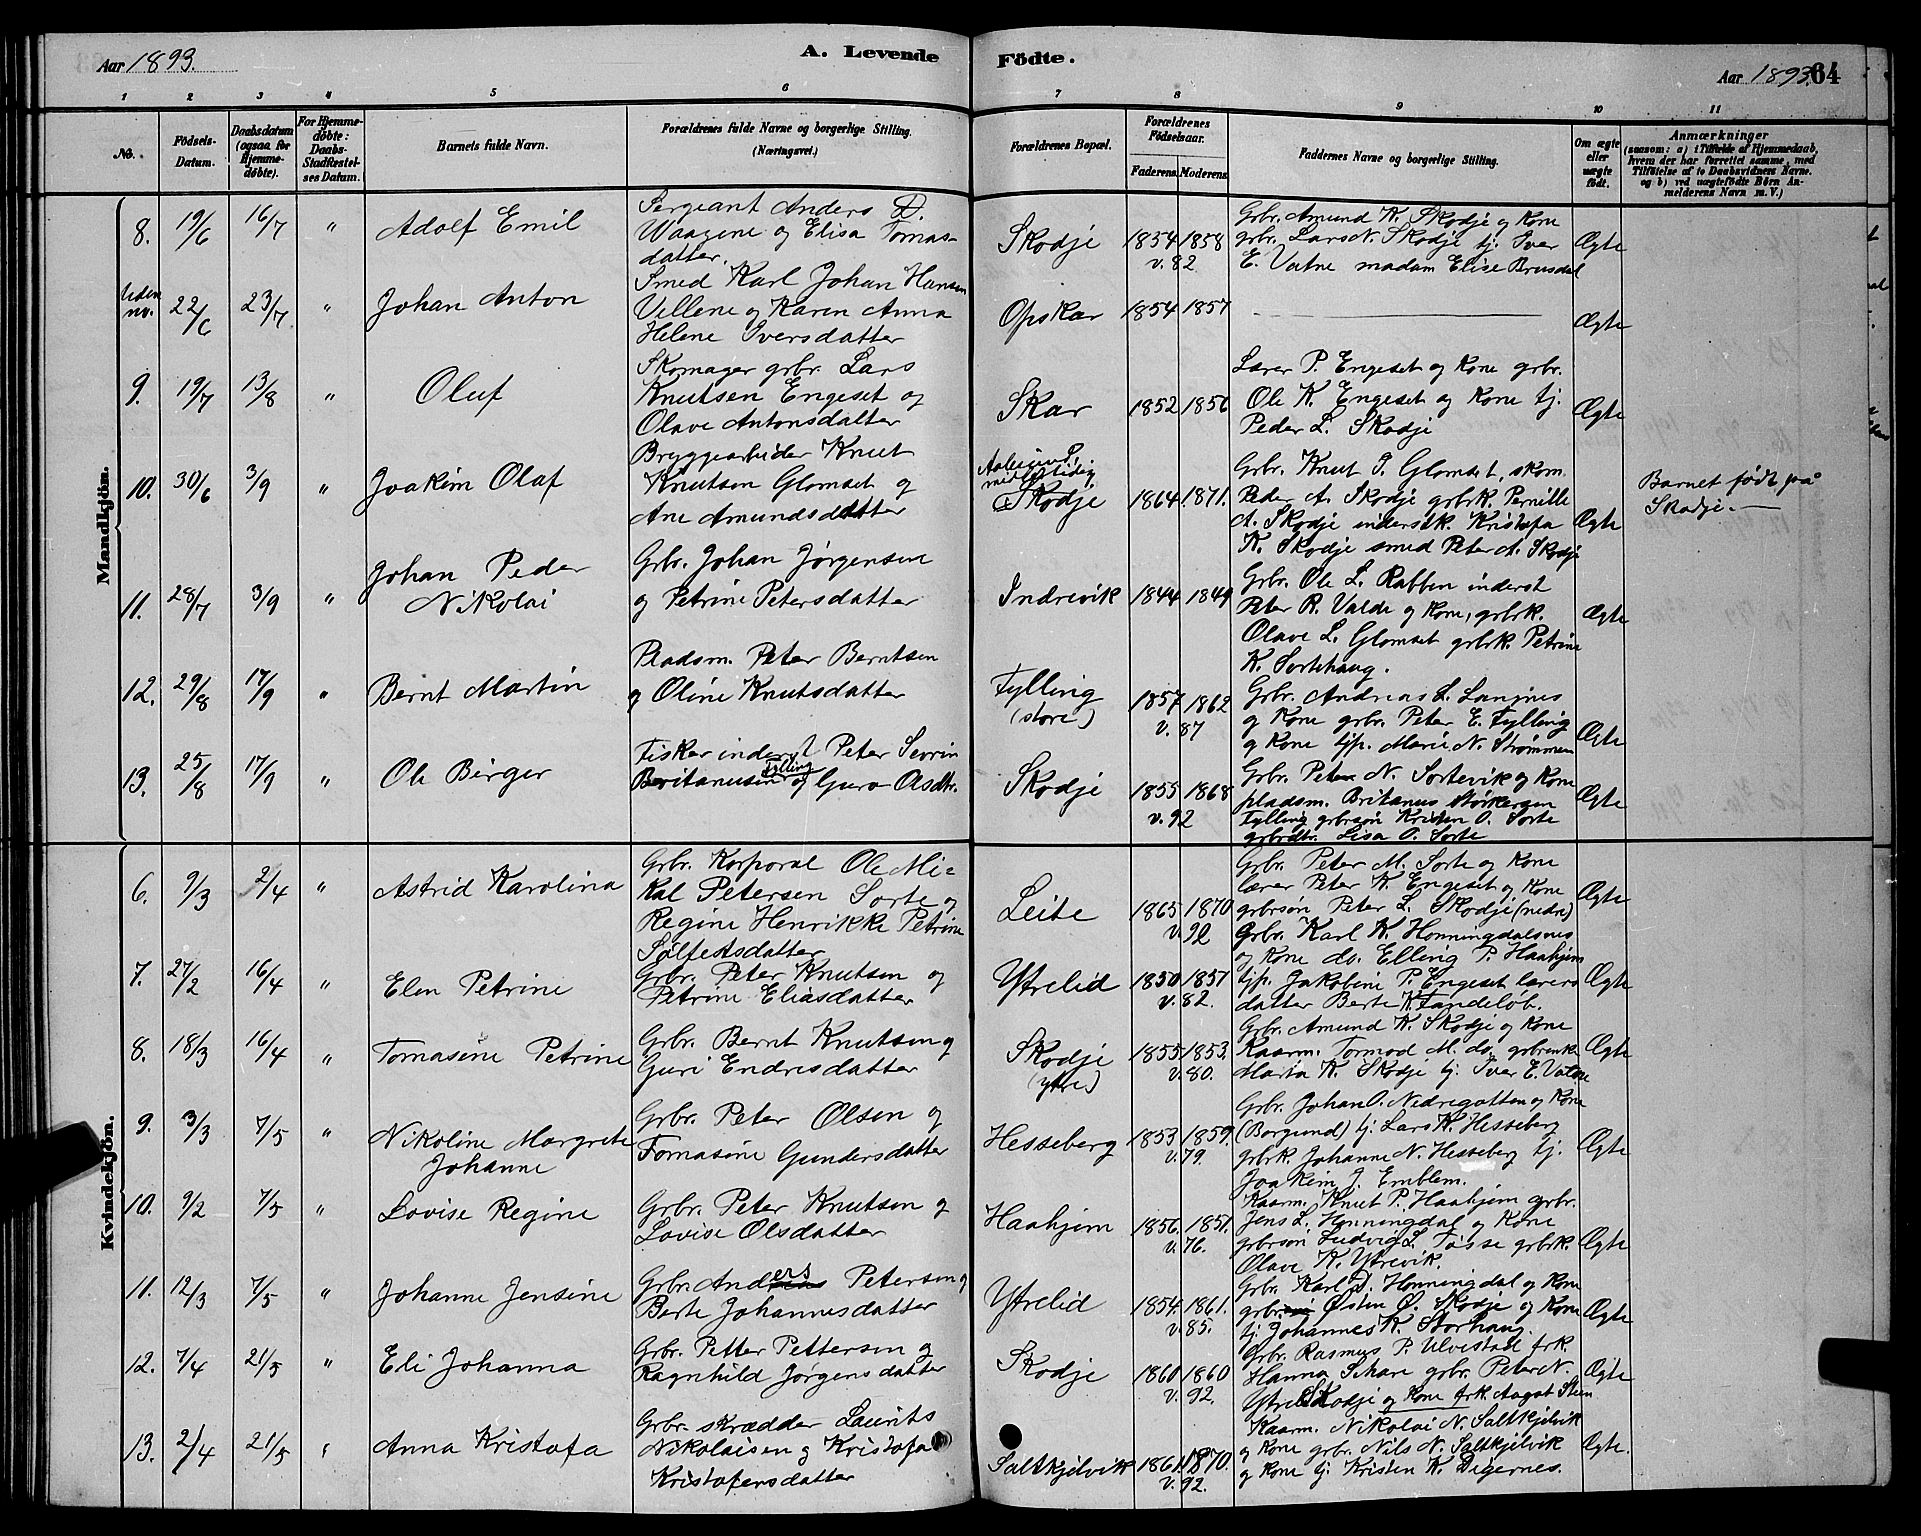 Aar 1893.
A. Levende Födte.
Aar 1893. 64
1 2 3 4 5 6 7 8 9 10 11
No.
Födsels-Datum.
Daabsdatum (ogsaa for Hjemmedöbte).
For Hjemmedöbte: Daabs-Stadfæstelses Datum.
Barnets fulde Navn.
Forældrenes fulde Navne og borgerlige Stilling. (Næringsvei.)
Forældrenes Bopæl.
Forældrenes Födselsaar.
Faderens. Moderens.
Faddernes Navne og borgerlige Stilling.
Om ægte eller uægte födt.
Anmærkninger
(saasom: a) i Tilfælde af Hjemmedaab, hvem der har forrettet samme, med Tilföielse af to Daabsvidners Navne. og b) ved uægtefödte Börn Anmelderens Navn m. V.)
Mandkjön.
8. 19/6 16/7 " Adolf Emil
Sergeant Anders D.
Waagene og Elisa Tomas-
datter.
Skodje 1854 1858
v. 82
Grbr. Amund K. Skodje og Kone
grbr. Lars N. Skodje tj. Iver
E. Vatne madam Elise Brusdal
Ægte
Uden no. 22/6 23/7 " Johan Anton
Smed Karl Johan Hansen
Vellene og Karen Anna
Helene Iversdatter
Opskar 1854 1857
Ægte
9. 19/7 13/8 " Oluf
Skomager grbr. Lars
Knutsen Engeset og
Olave Antonsdatter
Skar 1852 1856
Lærer P. Engeset og Kone grbr.
Ole K. Engeset og Kone tj.
Peder L. Skodje
Ægte
10. 30/6 3/9 " Joakim Olaf
Bryggearbeider Knut
Knutsen Glomset og
Ane Amundsdatter
Aalesund,
midlertidig
Skodje 1864. 1871.
Grbr. Knut J. Glomset, skom.
Peder A. Skodje grbrk. Pernille
A. Skodje inderstk. Kristofa
K. Skodje smed Peter A. Skodje
Ægte
Barnet født på
Skodje.
11. 28/7 3/9 " Johan Peder
Nikolai
Grbr. Johan Jørgensen
og Petrine Petersdatter
Indrevik 1844 1849
Grbr. Ole L. Rabben inderst
Peter R. Valde og Kone, grbrk.
Olave L. Glomset grbrk. Petrine
K. Sortehaug.
Ægte
12. 29/8 17/9 " Bernt Martin
Pladsm. Peter Berntsen
og Oline Knutsdatter
Fylling
(store) 1857 1862
v. 87
Grbr. Andreas L. Langnes
og Kone grbr. Peter E. Fylling
og Kone tjp. Marie N. Strømmen
Ægte
13. 25/8 17/9 " Ole Birger
Fisker inderst Peter Severin
Britanusen Fylling og Guro Olsdtr.
Skodje 1855 1868
v. 92
Grbr. Peter N. Sortevik og Kone
pladsm. Britanus Størkersen
Fylling grbrsøn Kristen O. Sorte
grbrdtr. Lisa O. Sorte
Ægte
Kvindekjön.
6. 9/3 2/4 " Astrid Karolina
Grbr. Korporal Ole Mi-
kal Petersen Sorte og
Regine Henrikke Petrine
Sølfestsdatter
Leite 1865 1870
v. 92
Grbr. Peter M. Sorte og Kone
lærer Peter K. Engeset og Kone
grbrsøn Peter L. Skodje (nedre)
Ægte
7. 27/2 16/4 " Elen Petrine
Grbr. Peter Knutsen og
Petrine Eliasdatter
Ytrelid 1850 1851
v. 82.
Grbr. Karl K. Honningdalsnes
og Kone do. Elling P. Haahjem
tjp. Jakobine P. Engeset lærers
datter Berte K. Tandeløb.
Ægte
8. 18/3 16/4 " Tomasine Petrine
Grbr. Bernt Knutsen og
Guri Endresdatter
Skodje
(ytre) 1855 1853.
v. 80.
Grbr. Amund K. Skodje og Kone
Kaarm. Tormod M. do. grbrenke
Marta K. Skodje tj. Iver E. Vatne
Ægte
9. 3/3 7/5 " Nikoline Margrete
Johanne
Grbr. Peter Olsen og
Tomasine Gundersdatter
Hesseberg 1853 1859.
v. 79.
Grbr. Johan O. Nedregotten og Kone
(Borgund) tj. Lars K. Hesseberg
grbrk. Johanne N. Hesseberg tj.
Joakim J. Emblem.
Ægte
10. 9/2 7/5 " Lovise Regine
Grbr. Peter Knutsen og
Lovise Olsdatter
Haahjem 1856. 1851.
v. 76.
Kaarm. Knut P. Haahjem grbr.
Jens L. Honningdal og Kone
grbrsøn Ludvig L. Tøsse grbrk.
Olave K. Ytrevik.
Ægte
11. 12/3 7/5 " Johanne Jensine
Grbr. Anders Petersen og
Berte Johannesdatter
Ytrelid 1854. 1861.
v. 85.
Grbr. Karl D. Honningdal og Kone
grbr. Østen O. Skodje og Kone
tj. Johannes K. Storhaug.
Ægte
12. 7/4 21/5 " Eli Johanna
Grbr. Petter Pettersen og
Ragnhild Jørgensdatter
Skodje 1860 1860
v. 92.
Grbr. Rasmus P. Ulvestad frk.
Hanna Schare grbr. Peter N.
Ytre Skodje og Kone frk. Aagot Steen
Ægte
13. 2/4 21/5 " Anna Kristofa
Grbr. skrædder Laurits
Nikolaisen og Kristofa
Kristofersdatter
Saltkjelvik 1861. 1870.
v. 92.
Kaarm. Nikolai N. Saltkjelvik
og Kone grbr. Nils N. Saltkjelvik
og Kone tj. Kristen K. Digernes.
Ægte.